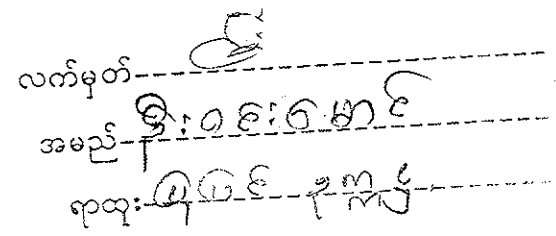 လက်မှတ်
အမည်-ဦးဝင်းမောင်
ရာထူး-ပြုပြင် ဥက္ကဋ္ဌ